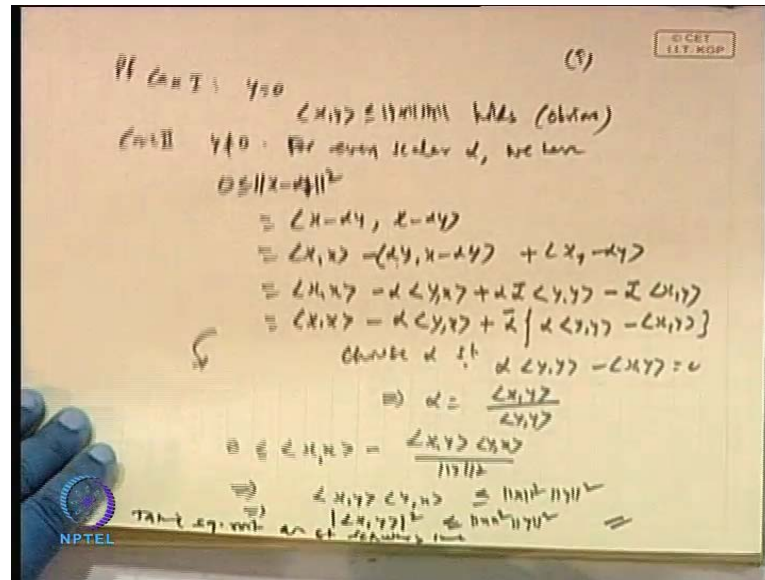 (9)
© CET
I.I.T. KGP
Pf Case I : y=0
<x,y> ≤ ||x|| ||y|| holds (obvious)
Case II y≠0 . For every scalar α, we have
0 ≤ ||x-αy||²
= <x-αy, x-αy>
= <x,x> -<αy, x-αy> + <x, -αy>
= <x,x> - α <y,x> + α ᾱ <y,y> - ᾱ <x,y>
= <x,x> - α <y,x> + ᾱ { α <y,y> - <x,y> }
choose α st α <y,y> - <x,y> = 0
⇒ α = <x,y> / <y,y>
0 ≤ <x,x> - <x,y> <y,x> / ||y||²
⇒ <x,y> <y,x> ≤ ||x||² ||y||²
⇒ |<x,y>|² ≤ ||x||² ||y||²
Take
NPTEL